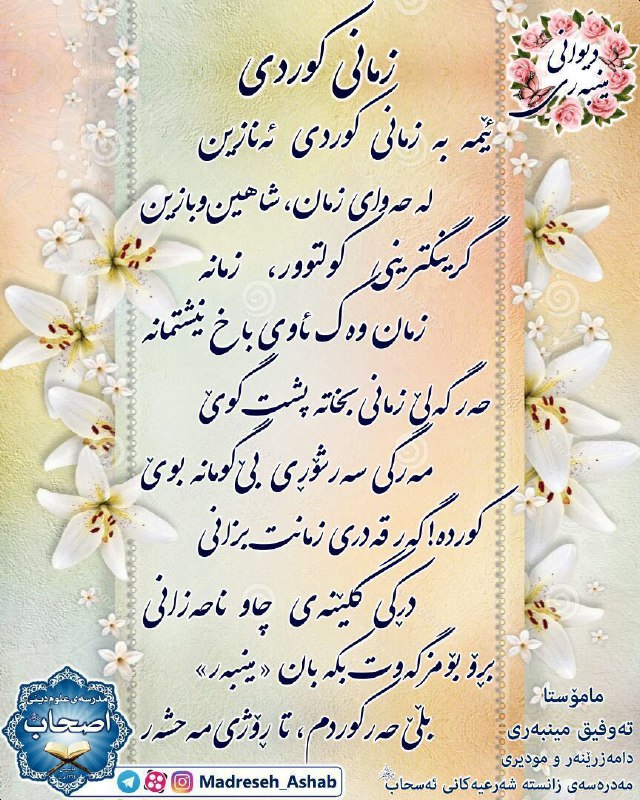 دیوانی
مینبەری
زمانی کوردی
ئێمە بە زمانی کوردی ئەنازین
لە حەوای زمان، شاهین و بازین
گرینگترینی کولتوور، زمانە
زمان وەک ئاوی باخ نیشتمانە
حەر گەلێ زمانی بخاتە پشت گوێ
مەرگی سەرشۆڕی بێ گومانە بوێ
کوردە! گەر قەدری زمانت بزانی
دڕکی گلێنەی چاو ناحەزانی
بڕۆ بۆ مزگەوت بکە بان «مینبەر»
بڵێ حەر کوردم، تا ڕۆژی مەحشەر
مامۆستا
تەوفیق مینبەری
دامەزرێنەر و مودیری
مەدرەسەی زانستە شەرعیەکانی ئەسحاب
مدرسەی علوم دینی
اصحاب
Madreseh_Ashab